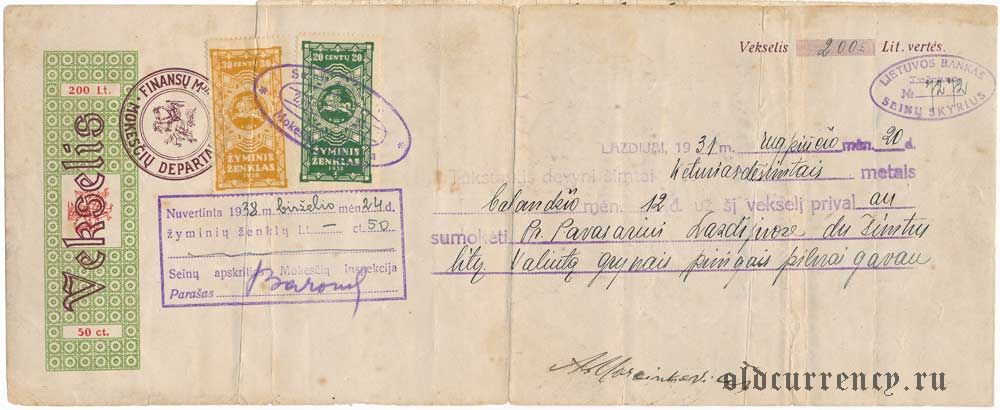 200 Lt.
Vekselis
50 ct.
FINANSŲ M
MOKESČIŲ DEPARTM
30 CENTŲ 30
ŽYMINIS
ŽENKLAS
20 CENTŲ 20
ŽYMINIS
ŽENKLAS
Mokesčių
Nuvertinta 1938 m. birželio mėn. 24 d.
žyminių ženklų Lt. — ct. 50
Seinų apskrities Mokesčių Inspekcija
Parašas
Vekselis 200= Lit. vertės.
LIETUVOS BANKAS
№ 7272
SEINŲ SKYRIUS
LAZDIJAI, 1931 m. rugpiučio mėn. 20 d.
Tūkstantis devyni šimtai keturiasdešimtais metais
balandžio mėn. 12 d. už šį vekselį prival au
sumokėti Pr. Pavasariui Lazdijuose du šimtus
litų. Valiutą grynais pinigais pilnai gavau
oldcurrency.ru